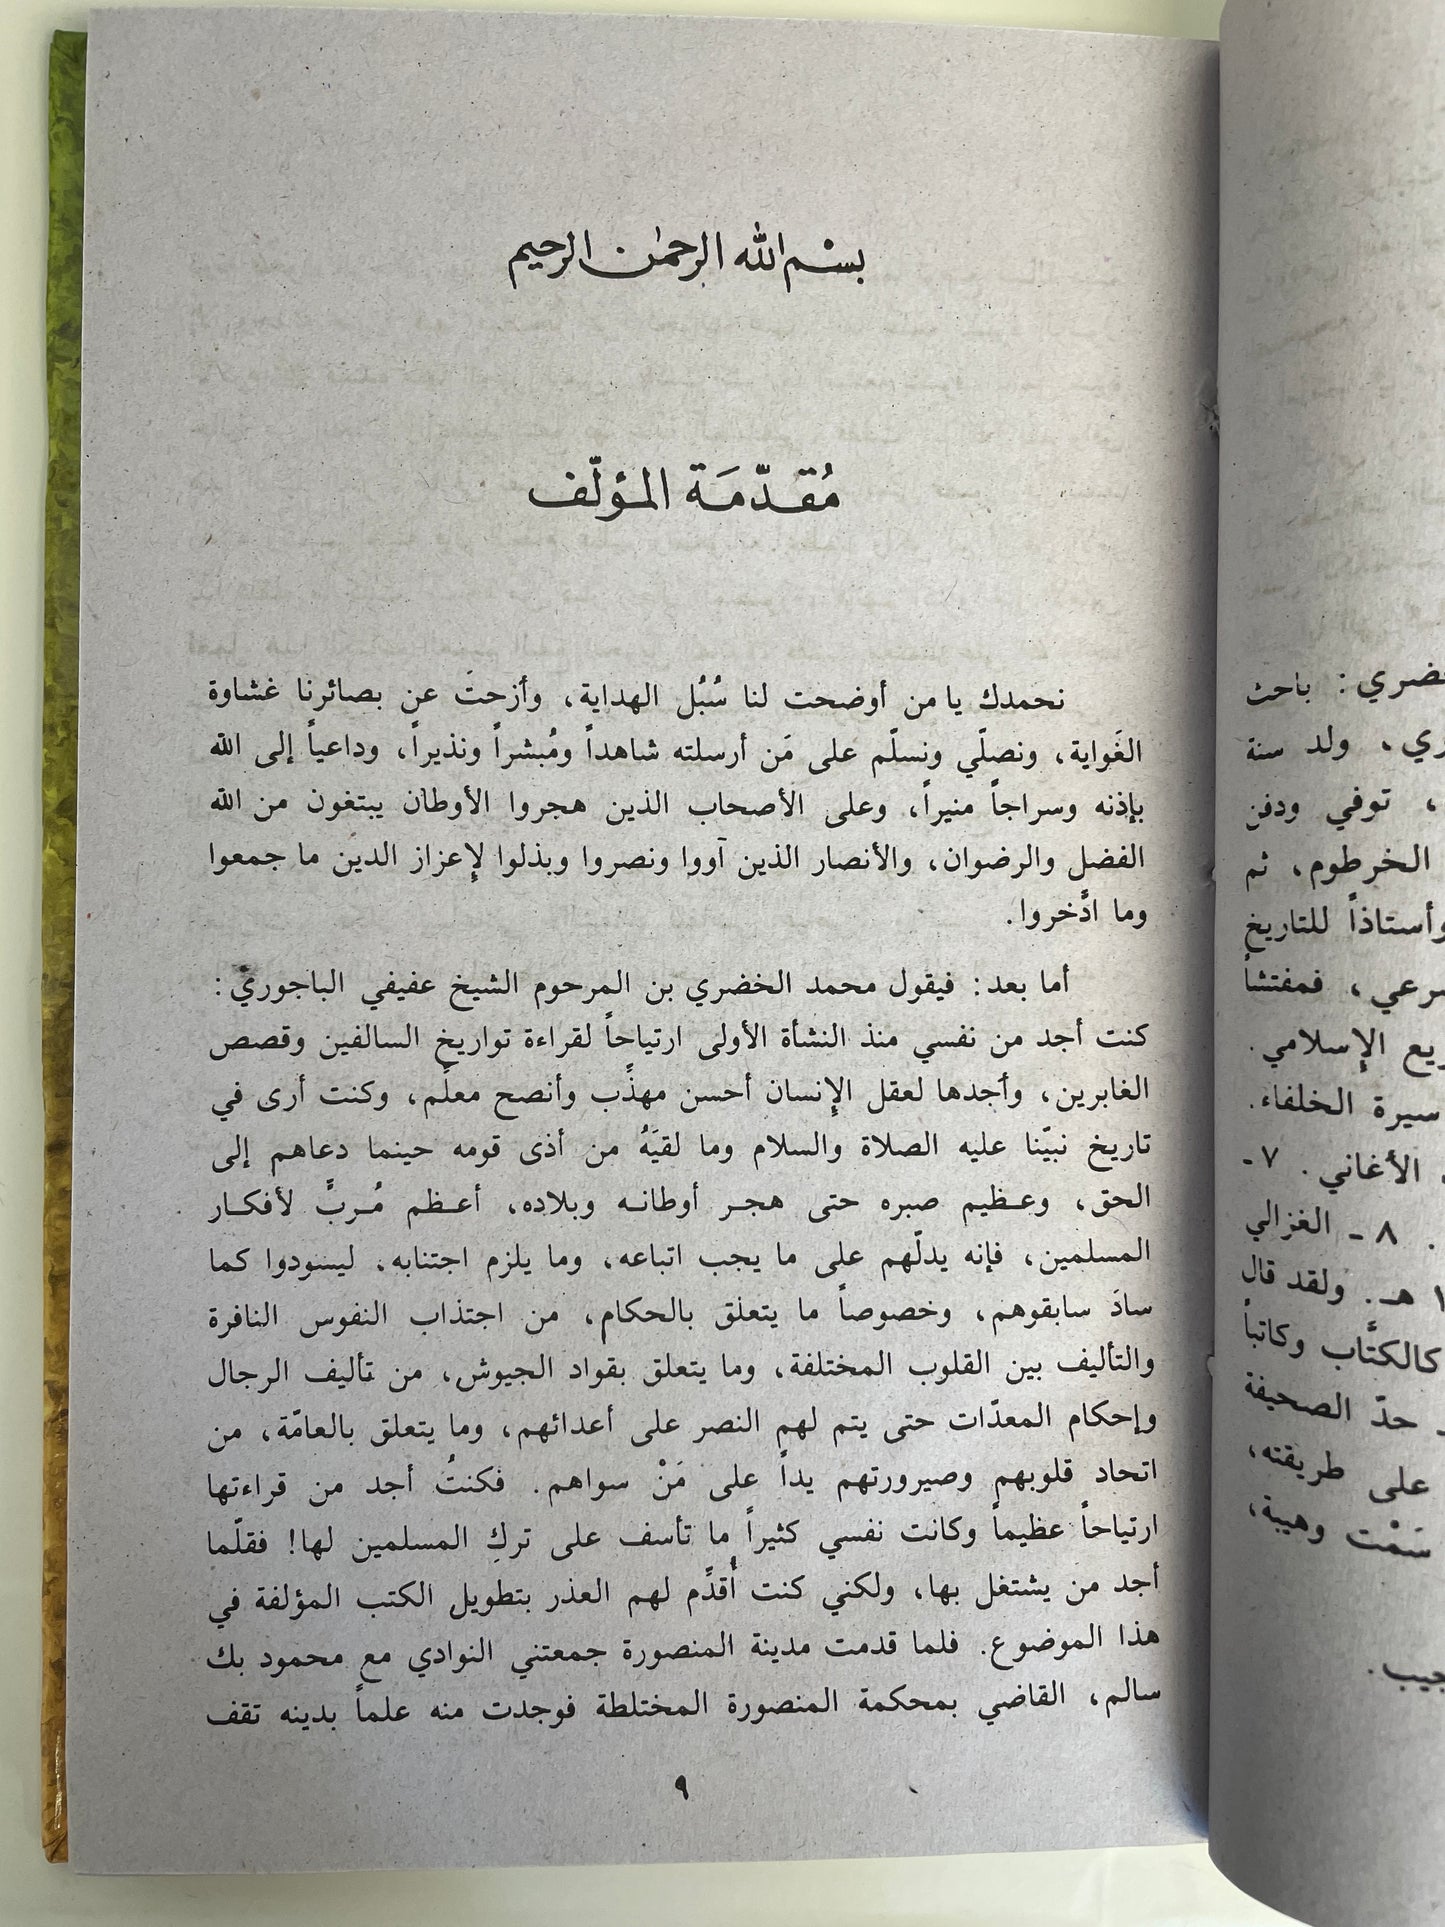 بسم الله الرحمٰن الرحيم
مُقدّمَة المؤلّف
نحمدك يا من أوضحت لنا سُبُل الهداية، وأزحتَ عن بصائرنا غشاوة
الغَواية، ونصلّي ونسلّم على مَن أرسلته شاهداً ومُبشراً ونذيراً، وداعياً إلى الله
بإذنه وسراجاً منيراً، وعلى الأصحاب الذين هجروا الأوطان يبتغون من الله
الفضل والرضوان، والأنصار الذين آووا ونصروا وبذلوا لإعزاز الدين ما جمعوا
وما ادَّخروا.
أما بعد: فيقول محمد الخضري بن المرحوم الشيخ عفيفي الباجوري:
كنت أجد من نفسي منذ النشأة الأولى ارتياحاً لقراءة تواريخ السالفين وقصص
الغابرين، وأجدها لعقل الإنسان أحسن مهذِّب وأنصح معلِّم، وكنت أرى في
تاريخ نبيّنا عليه الصلاة والسلام وما لقيَهُ من أذى قومه حينما دعاهم إلى
الحق، وعظيم صبره حتى هجر أوطانه وبلاده، أعظم مُربٍّ لأفكار
المسلمين، فإنه يدلّهم على ما يجب اتباعه، وما يلزم اجتنابه، ليسودوا كما
سادَ سابقوهم، وخصوصاً ما يتعلق بالحكام، من اجتذاب النفوس النافرة
والتأليف بين القلوب المختلفة، وما يتعلق بقواد الجيوش، من تأليف الرجال
وإحكام المعدّات حتى يتم لهم النصر على أعدائهم، وما يتعلق بالعامّة، من
اتحاد قلوبهم وصيرورتهم يداً على مَنْ سواهم. فكنتُ أجد من قراءتها
ارتياحاً عظيماً وكانت نفسي كثيراً ما تأسف على تركِ المسلمين لها! فقلّما
أجد من يشتغل بها، ولكني كنت أُقدِّم لهم العذر بتطويل الكتب المؤلفة في
هذا الموضوع. فلما قدمت مدينة المنصورة جمعتني النوادي مع محمود بك
سالم، القاضي بمحكمة المنصورة المختلطة فوجدت منه علماً بدينه تقف
٩
باحث
ولد سنة
، توفي ودفن
الخرطوم، ثم
وأستاذاً للتاريخ
، فمفتشاً
الإسلامي.
سيرة الخلفاء.
الأغاني. ٧ـ
. ٨ ـ الغزالي
هـ. ولقد قال
كالكتَّاب وكاتباً
حدّ الصحيفة
على طريقته،
سَمْت وهيبة،